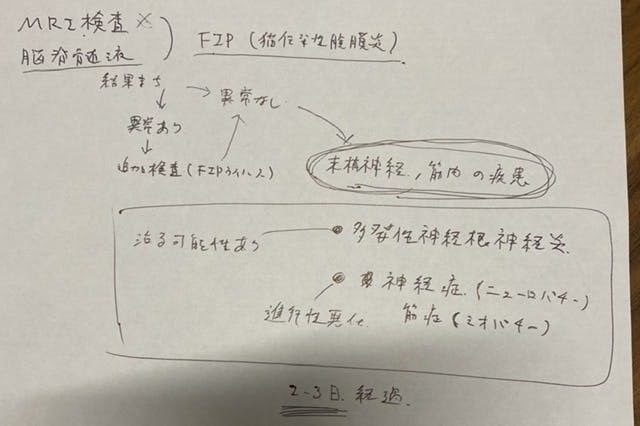 MRI検査 ×
脳脊髄液
FIP (猫伝染性腹膜炎)
結果まち → 異常なし
↓
異常あり
↓
追加検査 (FIPウイルス)
末梢神経、筋肉の疾患
治る可能性あり
● 多発性神経根神経炎
● 神経症 (ニューロパチー)
進行性悪化
筋症 (ミオパチー)
2-3日 経過